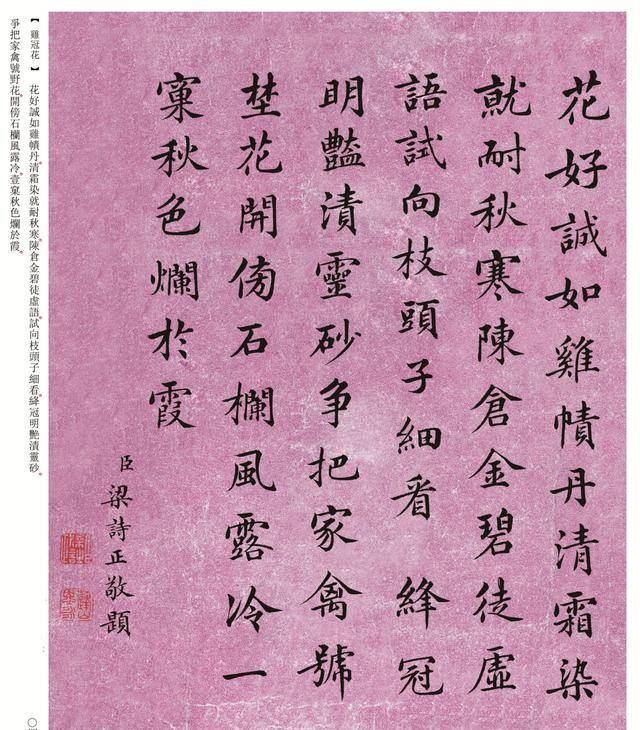 花好誠如雞幘丹清霜染
就耐秋寒陳倉金碧徒虛
語試向枝頭子細看 絳冠
眀豔漬靈砂争把家禽號
埜花開傍石欄風露冷一
窠秋色爛於霞
臣梁詩正敬題
【雞冠花】 花好誠如雞幘丹。清霜染就耐秋寒。陳倉金碧徒虛語。試向枝頭子細看。絳冠明艷漬靈砂。
爭把家禽號野花。開傍石欄風露冷。壹窠秋色爛於霞。